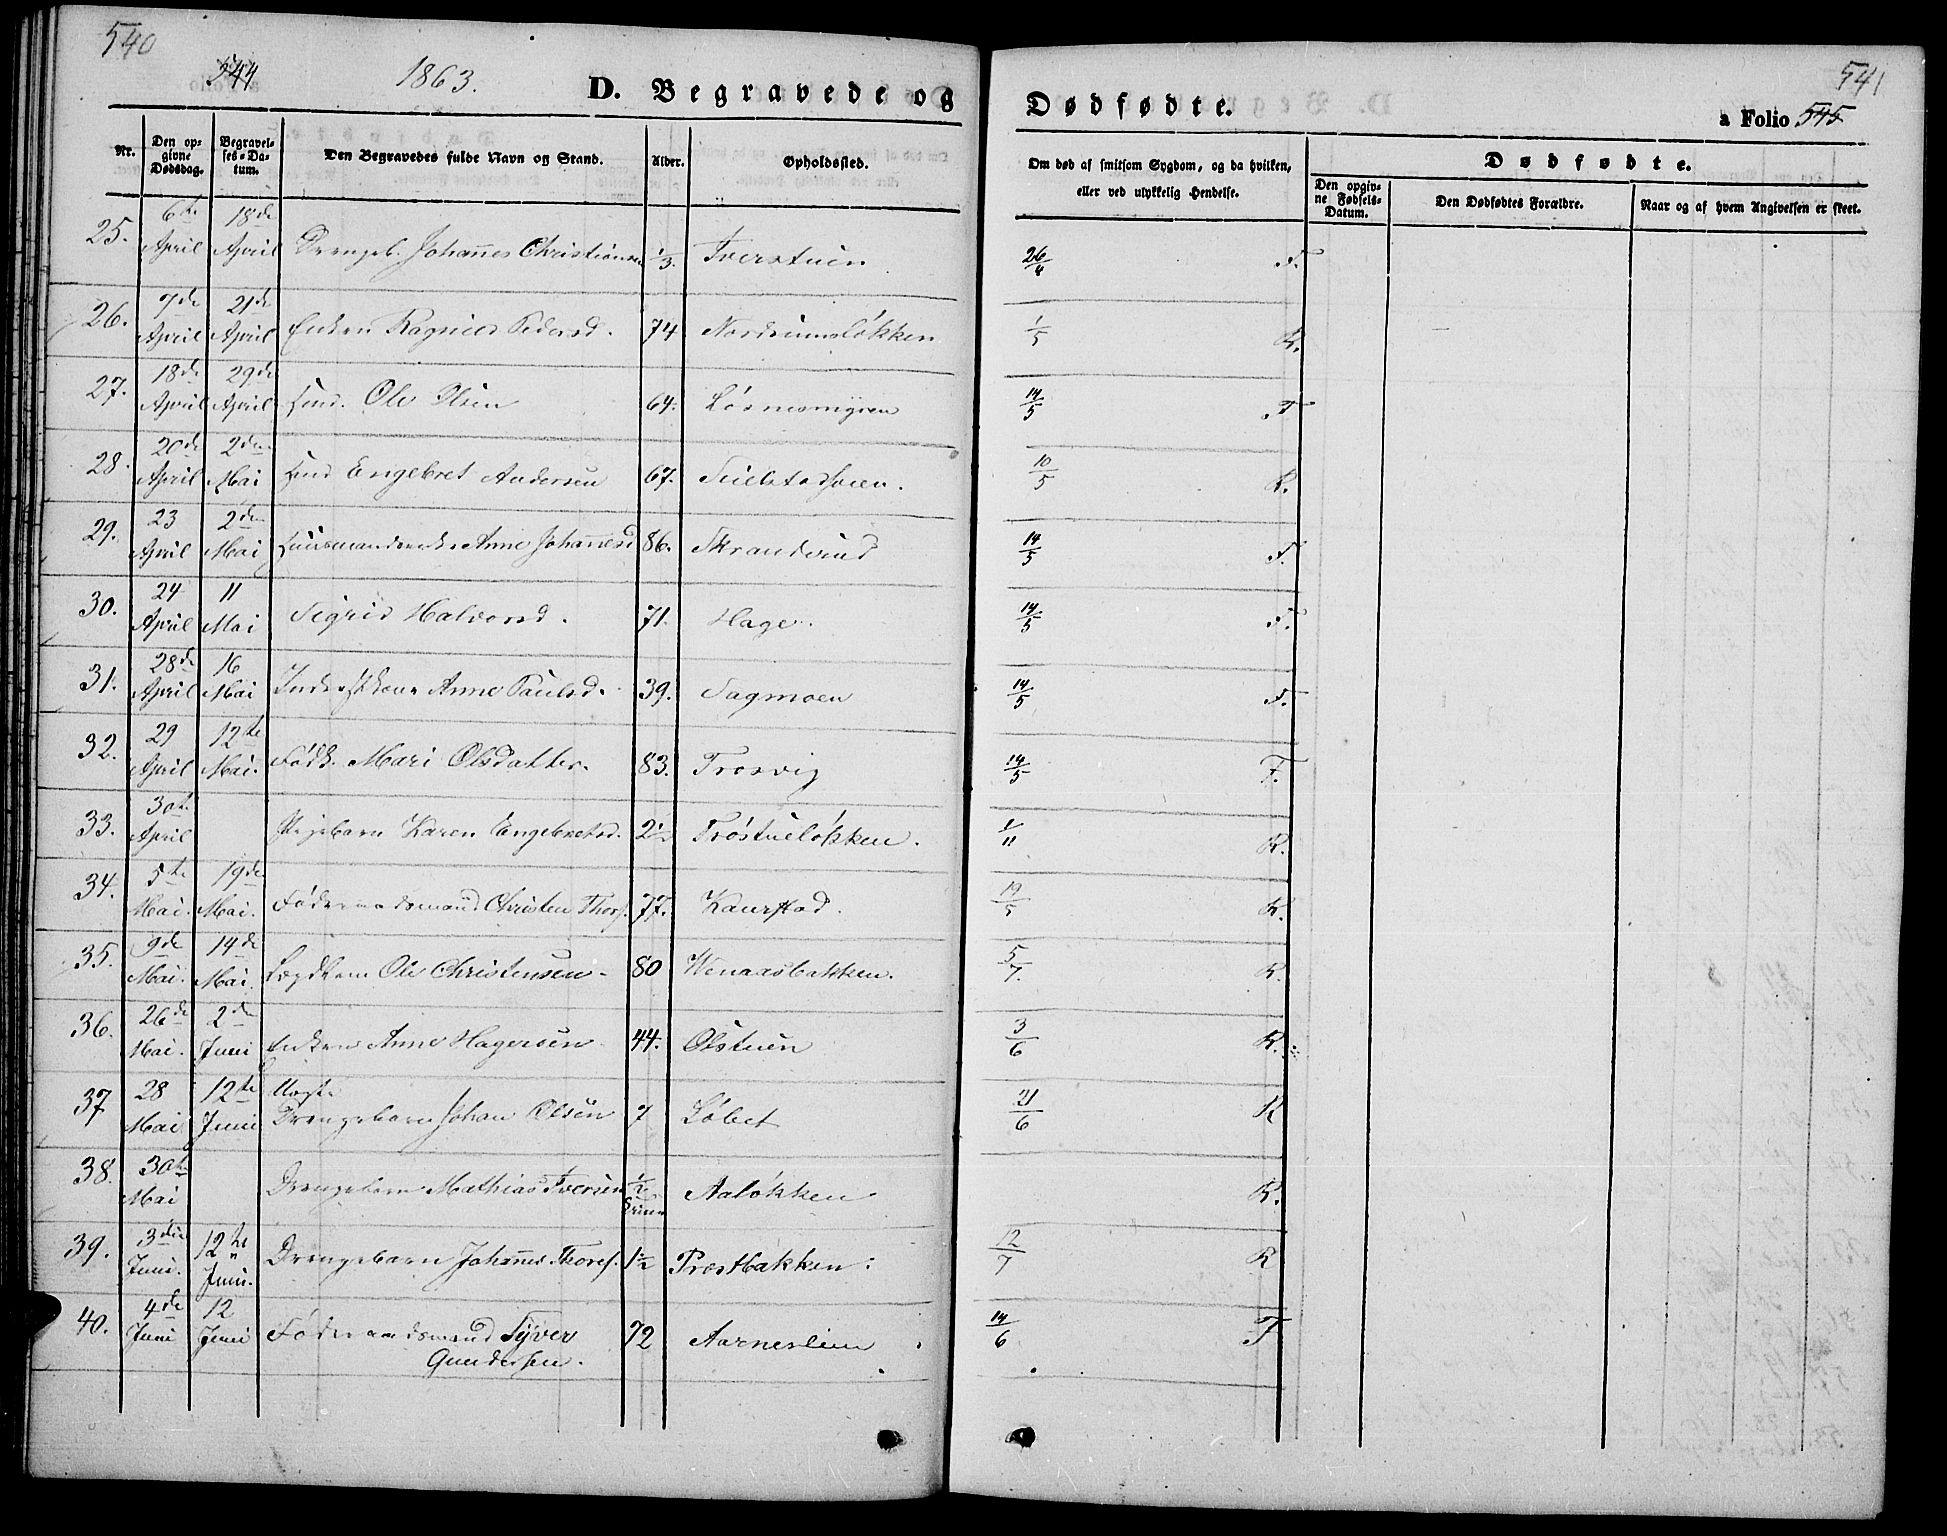 540
541
1863.
D. Begravede og
Dødfødte.
a Folio 545
Nr.
Den opgivne Dødsdag.
Begravelses-Datum.
Den Begravedes fulde Navn og Stand.
Alder.
Opholdssted.
Om død af smitsom Sygdom, og da hvilken, eller ved ulykkelig Hendelse.
Dødfødte.
Den opgivne Fødsels-Datum.
Den Dødfødtes Forældre.
Naar og af hvem Angivelsen er skeet.
25. 6te April 18de April Drengeb. Johannes Christiansen 1/3. Tverstuen 26/4 F.
26. 7de April 21de April Enken Pedersd. 74 Nordrumsløkken 1/5 K.
27. 18de April 29de April Huusm. Ole Olsen 64. Løsnesmyren 14/5 F
28. 20de April 2den Mai Huusm Engebret Andersen 67. 10/5 K.
29. 23 April 2den Mai Huusmandsenke Anne Johannesd 86. Skranderud 14/5 F.
30. 24 April 11 Mai Sigrid Halvorsd. 71. Hage. 14/5 F.
31. 28de April 16 Mai Anne Paulsd. 39. Sagmoen 14/5 F.
32. 29 April 12te Mai. Fødk. Mari Olsdatter. 83. Trosvig 14/5 F.
33. 30te April Pigebarn Karen Engebretsd. 2 1/2 Trøstueløkken. 1/11 K.
34. 5te Mai. 19de Mai. Føderaadsmand Christen Thors. 77. Kaurstad. 19/5 K.
35. 9de Mai. 14de Mai. Lægdslem Ole Christensen 80 Wenaasbakken. 5/7. K.
36. 26de Mai. 2de Juni Enken Anne Hagersen 44. Olstuen 3/6 K.
37 28 Mai 12te Juni Uægte Drengebarn Johan Olsen 7 Løbet 21/6 K
38. 30te Mai Drengebarn Mathias Iversen 1/2 Aaløkken K.
39. 3die Juni. 12te Juni. Drengebarn Johannes Thores. 1 1/2 Prestbakken. 12/7 K
40. 4de Juni 12 Juni Føderaadsmand Syver 72 Aarneslien 14/6 F
Gundersen.